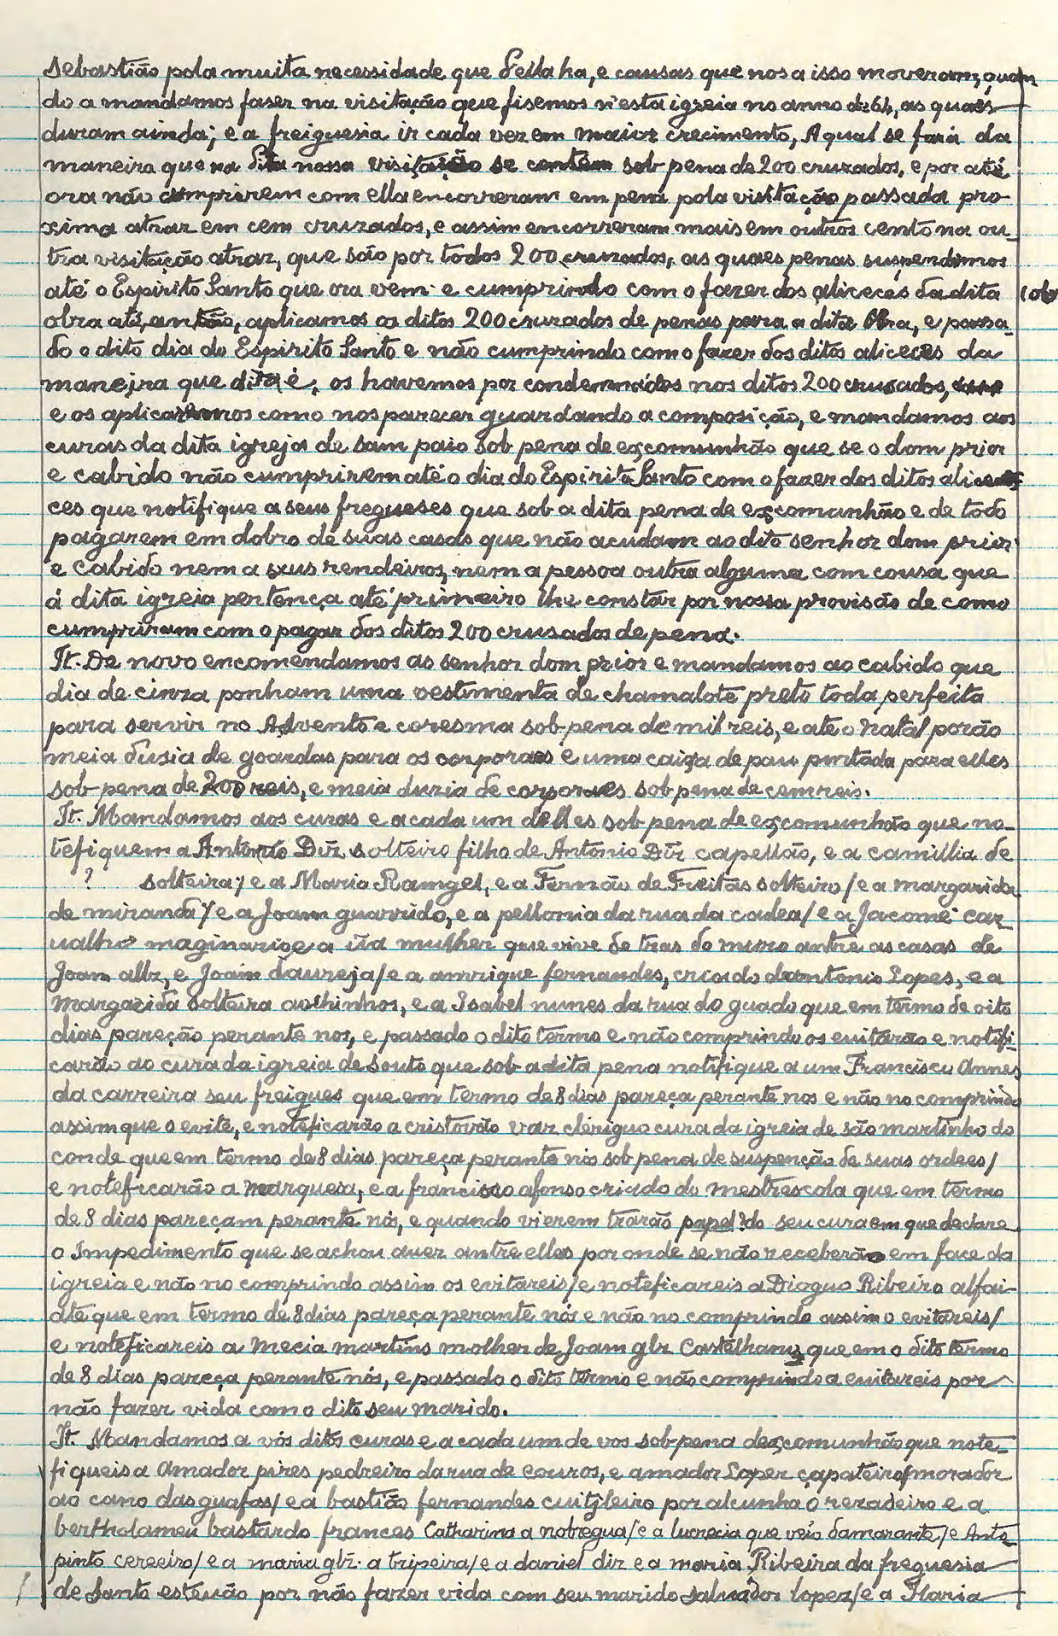 Sebastião pola muita necessidade que della ha, e causas que nos a isso moveram, quan
do a mandamos faser na visitação que fisemos n'esta igreia no anno de 64, as quaes
duram ainda; e a freiguesia ir cada vez em maior crecimento, A qual se fará da
maneira que na dita nossa visitação se contém sob pena de 200 cruzados, e por até
ora não cumprirem com ella encorreram em pena pola visitação passada pro-
xima atraz em cem cruzados, e assim encorreram mais em outros cento na ou-
tra visitação atraz, que são por todos 200 cruzados, as quaes penas suspendemos
até o Espirito Santo que ora vem e cumprindo com o fazer dos aliceces da dita
obra até então, aplicamos os ditos 200 cruzados de penas para a dita Obra, e passa-
do o dito dia do Espirito Santo e não cumprindo com o fazer dos ditos aliceces da
maneira que dita é, os havemos por condemnados nos ditos 200 cruzados,
e os aplicaremos como nos parecer guardando a composição, e mandamos aos
curas da dita igreja de Sam paio sob pena de excomunhão que se o dom prior
e cabido não cumprirem até o dia do Espirito Santo com o fazer dos ditos alice
ces que notifique a seus fregueses que sob a dita pena de excomunhão e de todo
pagarem em dobro de suas casas que não acudam ao dito senhor dom prior
e Cabido nem a seus rendeiros, nem a pessoa outra alguma com cousa que
á dita igreia pertença até primeiro lhe constar por nossa provisão de como
cumpriram com o pagar dos ditos 200 crusados de pena.
It. De novo encomendamos ao senhor dom prior e mandamos ao cabido que
dia de cinza ponham uma vestimenta de chamalote preto toda perfeita
para servir no Advento e coresma sob pena de mil reis, e até o Natal porão
meia dusia de goardas para os corporaes e uma caixa de pau pintada para elles
sob pena de 200 reis, e meia duzia de corporaes sob pena de cem reis.
It. Mandamos aos curas e a cada um delles sob pena de excomunhão que no-
tefiquem a Antonio Diz solteiro filho de Antonio Diz capellão, e a camillia de
? solteira / e a Maria Ramgel, e a Fernão de Freitas solteiro / e a margarida
de miranda / e a Joam guarrido, e a pellonia da rua da cadea / e a Jacome car
ualho maginario e a ũa mulher que vive de tras do muro antre as casas de
Joam albz, e Joam daureja / e a amrique fernandes, criado de antonio Lopes, e a
Margarida solteira aos hinhos, e a Isabel nunes da rua do guado que em termo de oito
dias pareção perante nos, e passado o dito termo e não comprindo os euitarão e notifi-
carão ao cura da igreia de Souto que sob a dita pena notifique a um Francisco Annes
da carreira seu freigues que em termo de 8 dias pareça perante nos e não no comprindo
assim que o evite, e noteficarão a cristovão vaz clériguo cura da igreia de são martinho do
conde que em termo de 8 dias pareça perante nós sob pena de suspenção de suas ordees /
e noteficarão a Marquesa, e a francisco afonso criado do mestrescola que em termo
de 8 dias pareçam perante nós, e quando vierem trarão papel? do seu cura em que declare
o Impedimento que se achou auer antre elles por onde se não receberão em face da
igreia e não no comprindo assim os evitareis / e noteficareis a Dioguo Ribeiro alfai-
ate que em termo de 8 dias pareça perante nós e não no comprindo assim o evitareis /
e noteficareis a Mecia martins molher de Joam glz Castelhano que em o dito termo
de 8 dias pareça perante nós, e passado o dito termo e não comprindo a euitareis por
não fazer vida com o dito seu marido.
It. Mandamos a vós ditos curas e a cada um de vos sob pena de excomunhão que note-
fiqueis a Amador pires pedreiro da rua de couros, e amador Lopez çapateiro / morador
ao cano das guafas / e a bastião fernandes cuitileiro por alcunha o rezadeiro e a
bertholameu bastardo frances Catharina a nobregua / e a lucrecia que veio damarante / e Anto
pinto cereeiro / e a maria glz. a tripeira / e a daniel diz e a maria Ribeira da freguesia
de Santo esteuão por não fazer vida com seu marido Salvador lopez / e a Maria